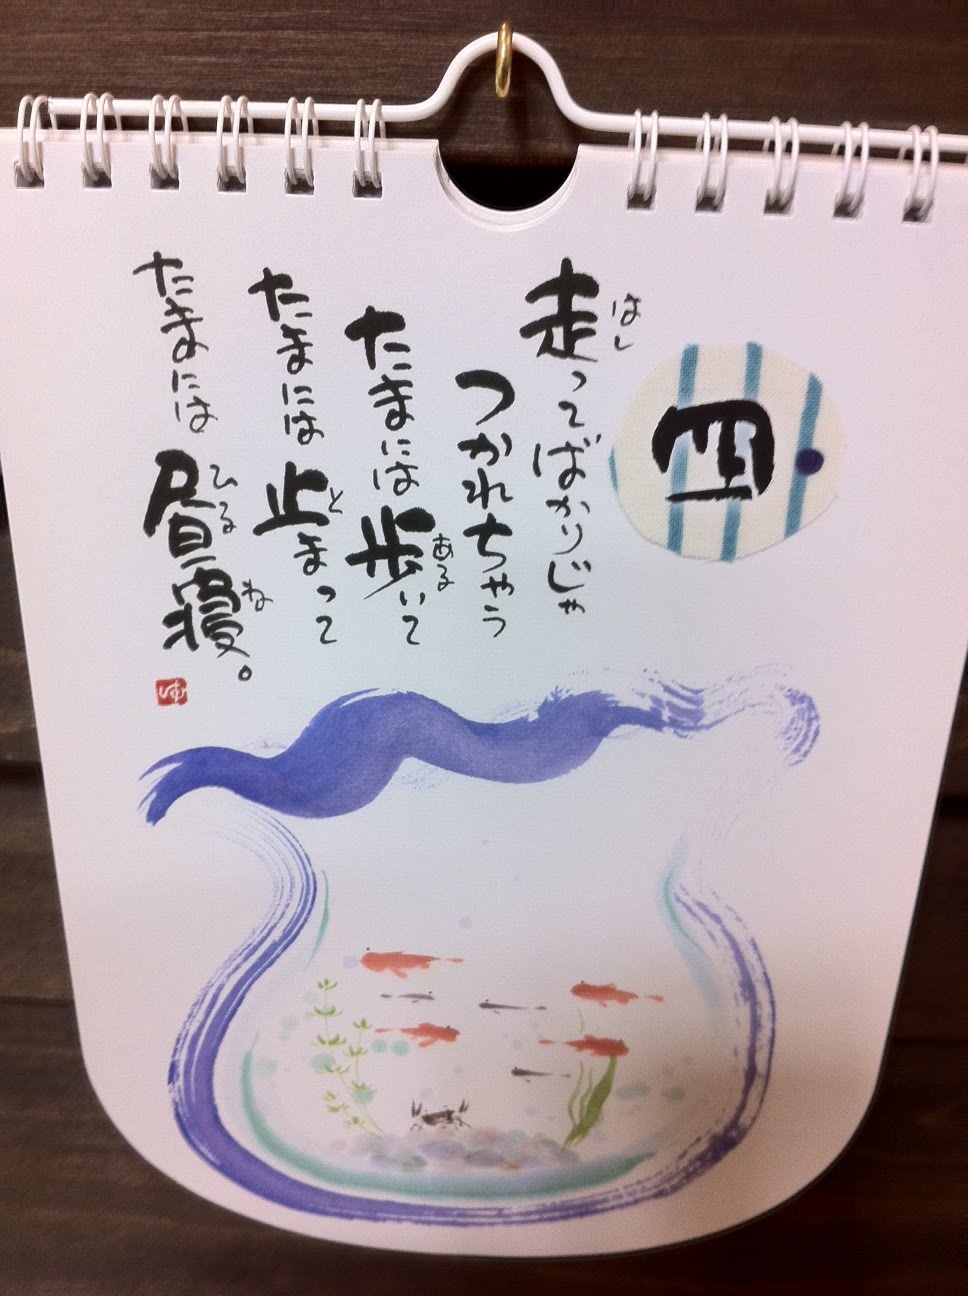 四
走ってばかりじゃ
はし
つかれちゃう
たまには歩いて
ある
たまには止まって
と
たまには昼寝。
ひるね